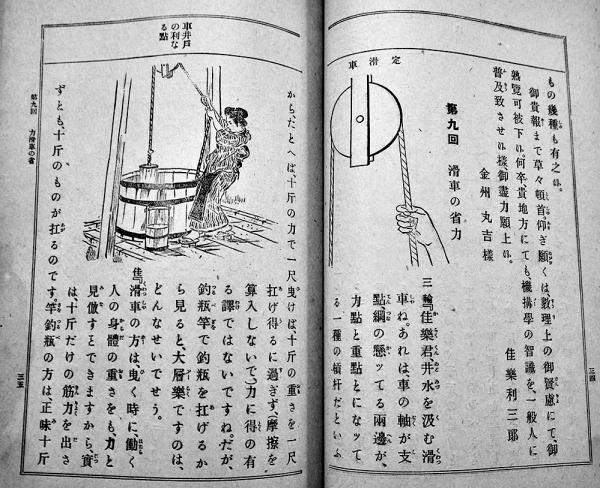 もの幾種も有之候。
御貴報まで草々頓首。仰ぎ願くは、敎理上の御賢慮にて、御
熟覽可被下候。何卒貴地方にても、機搆學の智識を、一般人に
普及致させ候樣御盡力願上候。
佳樂利三郎
金州丸吉樣
第九回 滑車の省力
定滑車
三輪『佳樂君、井水を汲む滑
車ね。あれは、車の軸が支
點、綱の懸ッてる兩邊が、
力點と重點とになッて
る一種の槓杆だといふ
三四
車井戸
の利な
る點
から、たとへば、十斤の力で一尺曳けば、十斤の重さを一尺
扛げ得るに過ぎず、(摩擦を
算入しないで)力に得の有
る譯ではないですね。だが、
釣瓶竿で釣瓶を扛げるか
ら見ると、大層樂ですのは、
どんなせいでせう。
佳『滑車の方は、曳く時に働く
人の身體の重さをも、力と
見倣すことできますから、實
は、十斤だけの筋力を出さ
ずとも、十斤のものが扛るのです。竿釣瓶の方は、正味十斤
第九回 力滑車の省
三五